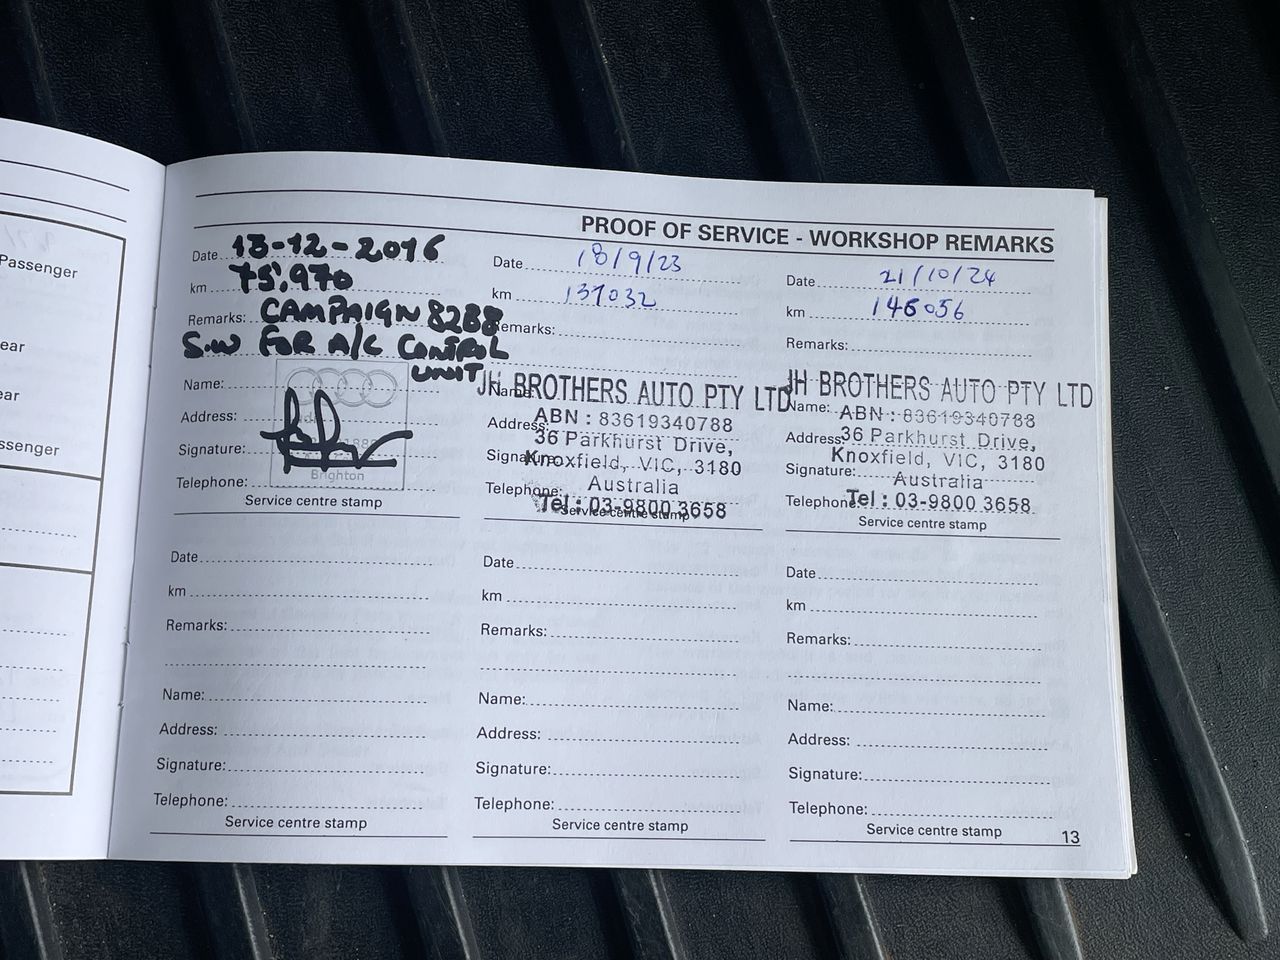 PROOF OF SERVICE - WORKSHOP REMARKS
Passenger
ear
ar
ssenger
Date 13-12-2016
km 75,970
Remarks: CAMPAIGN 8288
S.W FOR A/C CONTROL
UNIT
Name:
Address:
Signature:
Brighton
Telephone:
Service centre stamp
Date 18/9/23
km 137032
Remarks:
JH BROTHERS AUTO PTY LTD
Name:
ABN : 83619340788
Address:
36 Parkhurst Drive,
Signature:
Knoxfield, VIC, 3180
Australia
Telephone:
Tel : 03-9800 3658
Service centre stamp
Date 21/10/24
km 146056
Remarks:
JH BROTHERS AUTO PTY LTD
Name: ABN : 83619340788
Address: 36 Parkhurst Drive,
Knoxfield, VIC, 3180
Signature:
Australia
Telephone: Tel : 03-9800 3658
Service centre stamp
Date
km
Remarks:
Name:
Address:
Signature:
Telephone:
Service centre stamp
Date
km
Remarks:
Name:
Address:
Signature:
Telephone:
Service centre stamp
Date
km
Remarks:
Name:
Address:
Signature:
Telephone:
Service centre stamp
13